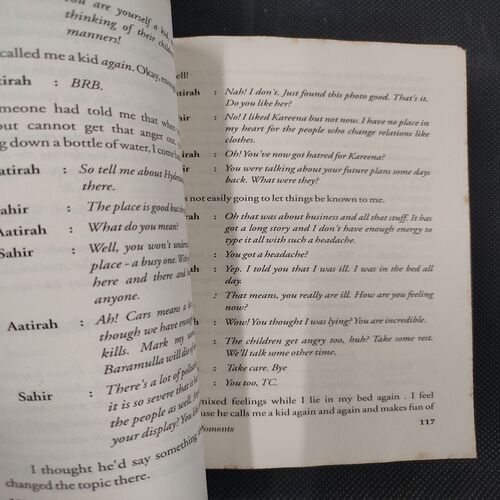 You are yourself a kid,
thinking of their child
manners!
called me a kid again. Okay, enough
irah : BRB.
omeone had told me that when
out cannot get that anger out,
ng down a bottle of water, I came
atirah : So tell me about Hydera
there.
ahir : The place is good but
Aatirah : What do you mean?
Sahir : Well, you won't underst
place - a busy one. With
here and there and
anyone.
Aatirah : Ah! Cars means a
though we have enough
kills. Mark my
Baramulla will die of
Sahir : There's a lot of pollut
it is so severe that it
the people as well. An
your display? You
I thought he'd say something
changed the topic there.
ell!
rah : Nah! I don't. Just found this photo good. That's it.
Do you like her?
: No! I liked Kareena but not now. I have no place in
my heart for the people who change relations like
clothes.
ah : Oh! You've now got hatred for Kareena?
: You were talking about your future plans some days
back. What were they?
s not easily going to let things be known to me.
h : Oh that was about business and all that stuff. It has
got a long story and I don't have enough energy to
type it all with such a headache.
: You got a headache?
h : Yep. I told you that I was ill. I was in the bed all
day.
: That means, you really are ill. How are you feeling
now?
h : Wow! You thought I was lying? You are incredible.
: The children get angry too, huh? Take some rest.
We'll talk some other time.
h : Take care. Bye
: You too, TC.
mixed feelings while I lie in my bed again . I feel
use he calls me a kid again and again and makes fun of
Moments 117